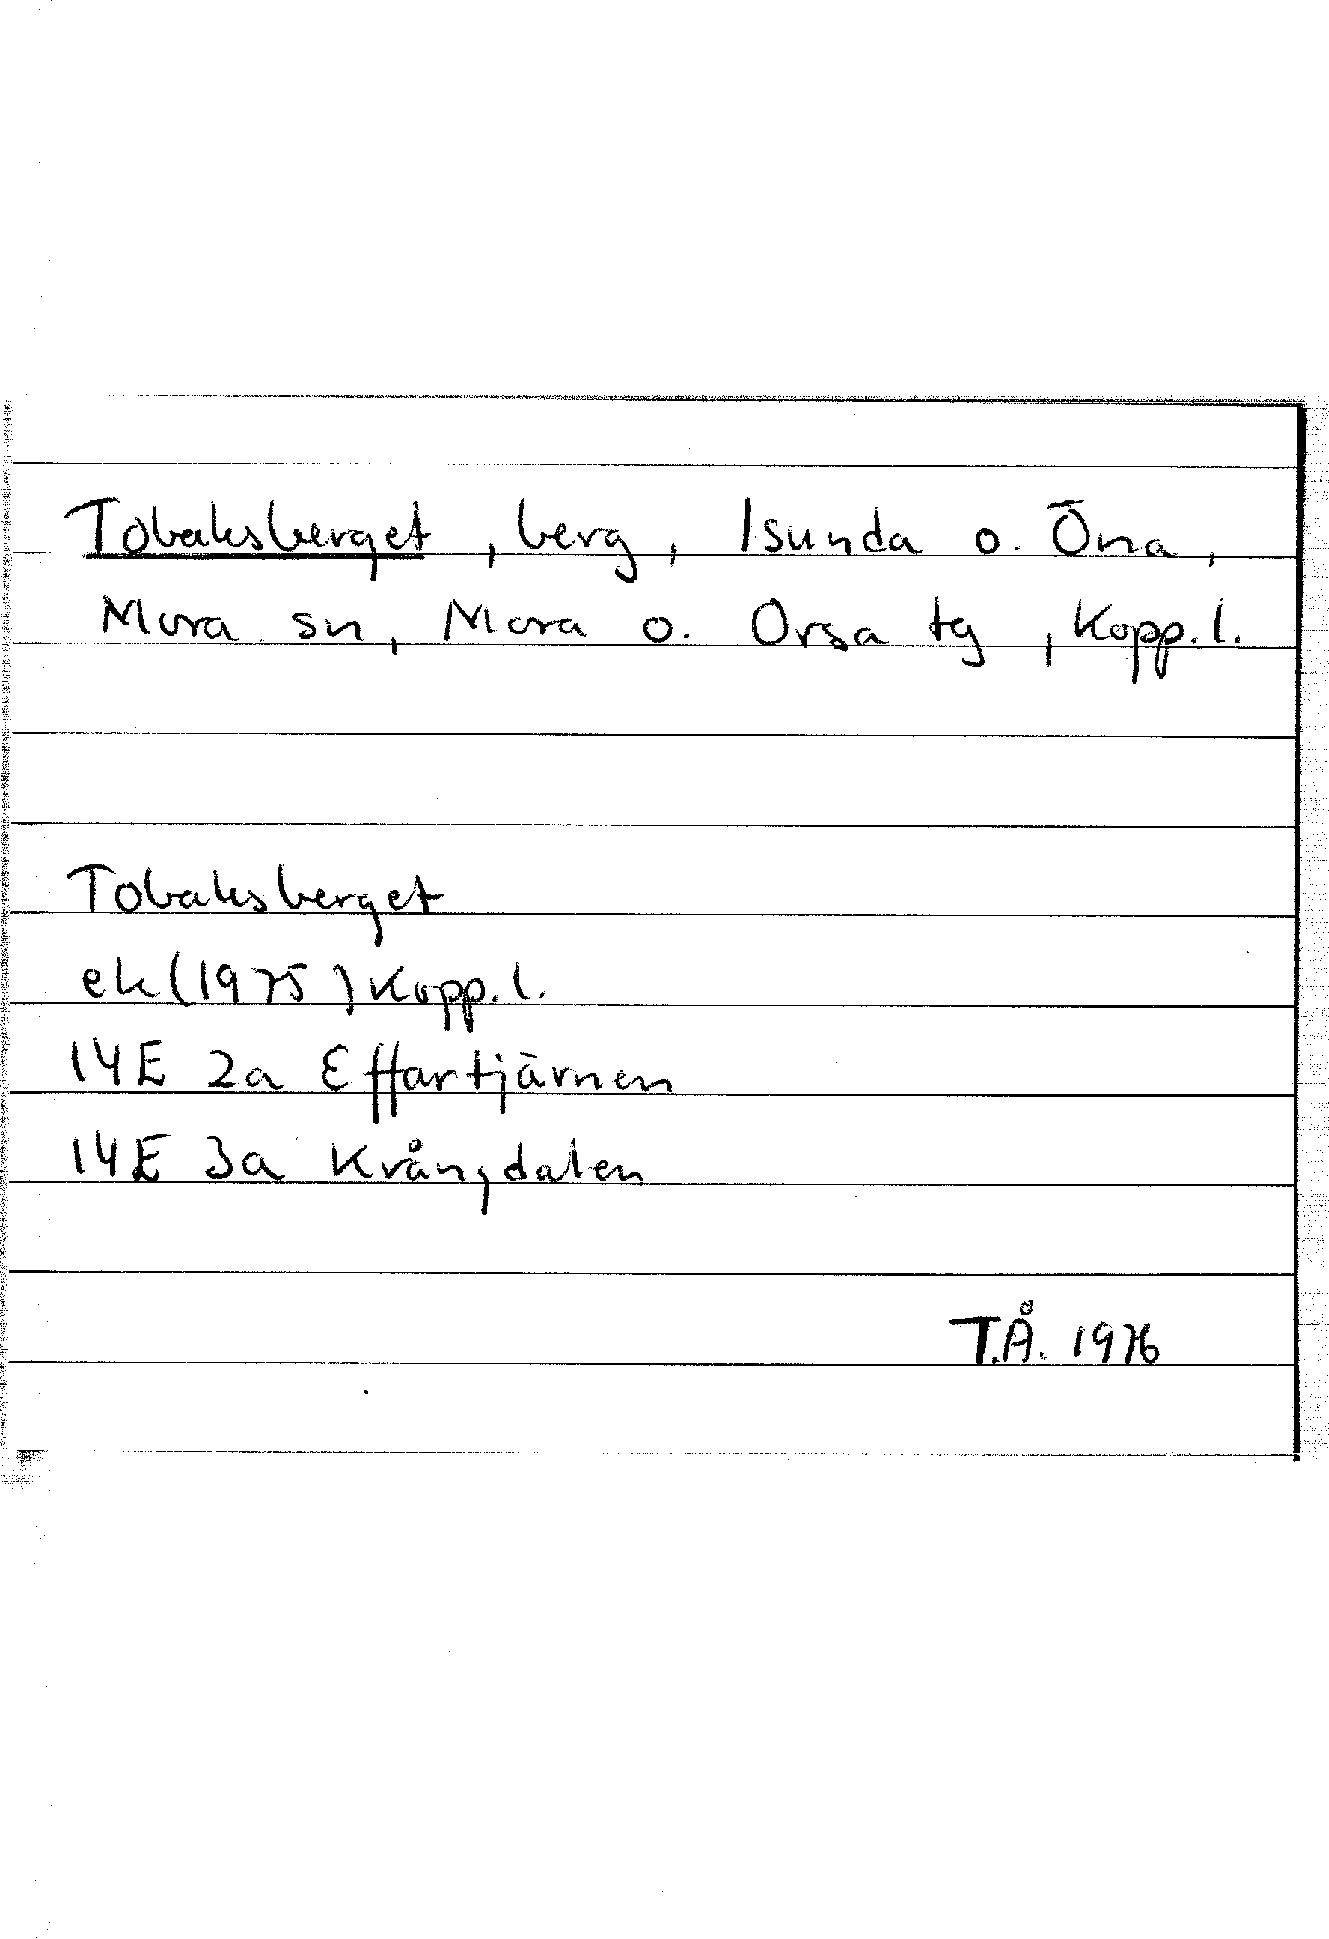 Tobaksberget, berg, Isunda o. Öna,
Mora sn, Mora o. Orsa tg, Kopp.l.
Tobaksberget
ek (1975) Kopp.l.
14E 2a Effartjärnen
14E 3a Krångdalen
T.Å. 1976